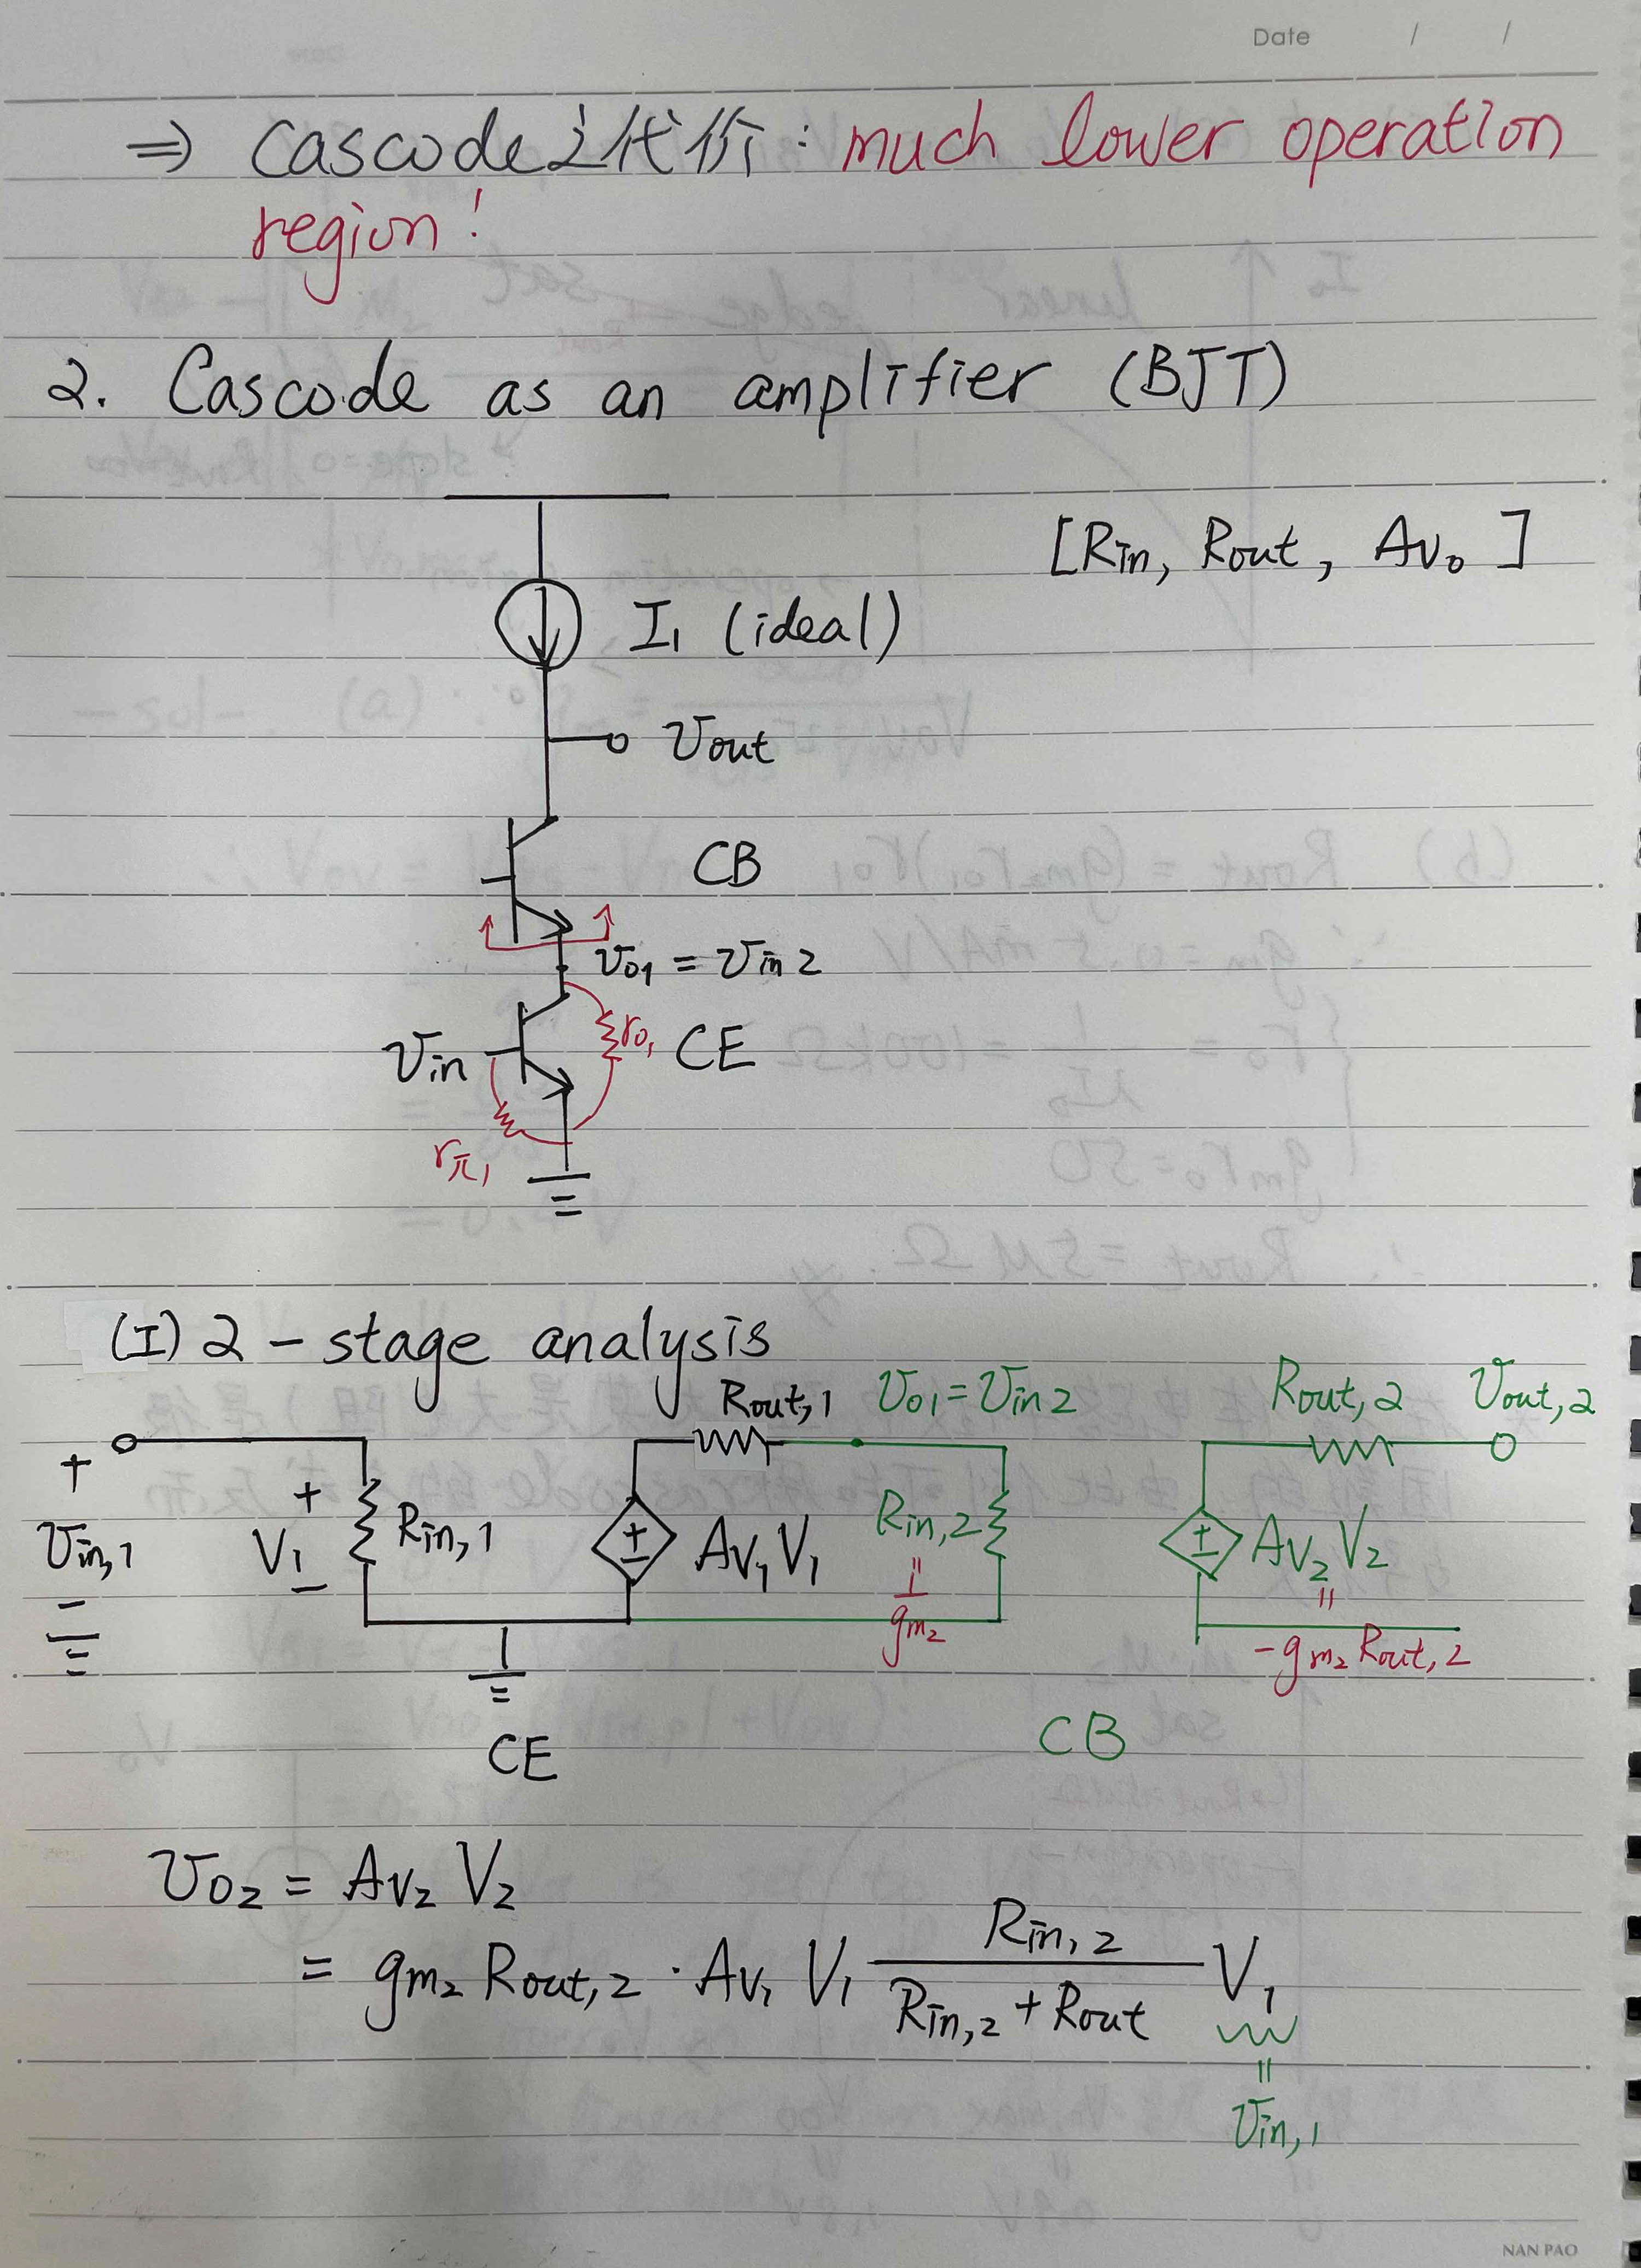 Date / /
⇒ Cascode之代价: much lower operation
region!
2. Cascode as an amplifier (BJT)
[Rin, Rout, Av₀]
I₁ (ideal)
Vout
CB
Vo₁ = Vin2
Vin
ro₁
CE
rπ₁
(I) 2-stage analysis
Rout,1 Vo1=Vin2 Rout,2 Vout,2
+ Vin,1 −
+ V₁ − Rin,1 Av₁V₁ Rin,2 = 1/gm₂ Av₂V₂ = -gm₂Rout,2
CE CB
Vo₂ = Av₂ V₂
= gm₂ Rout,2 · Av₁ V₁ Rin,2 / (Rin,2 + Rout) V₁
=
Vin,1
NAN PAO